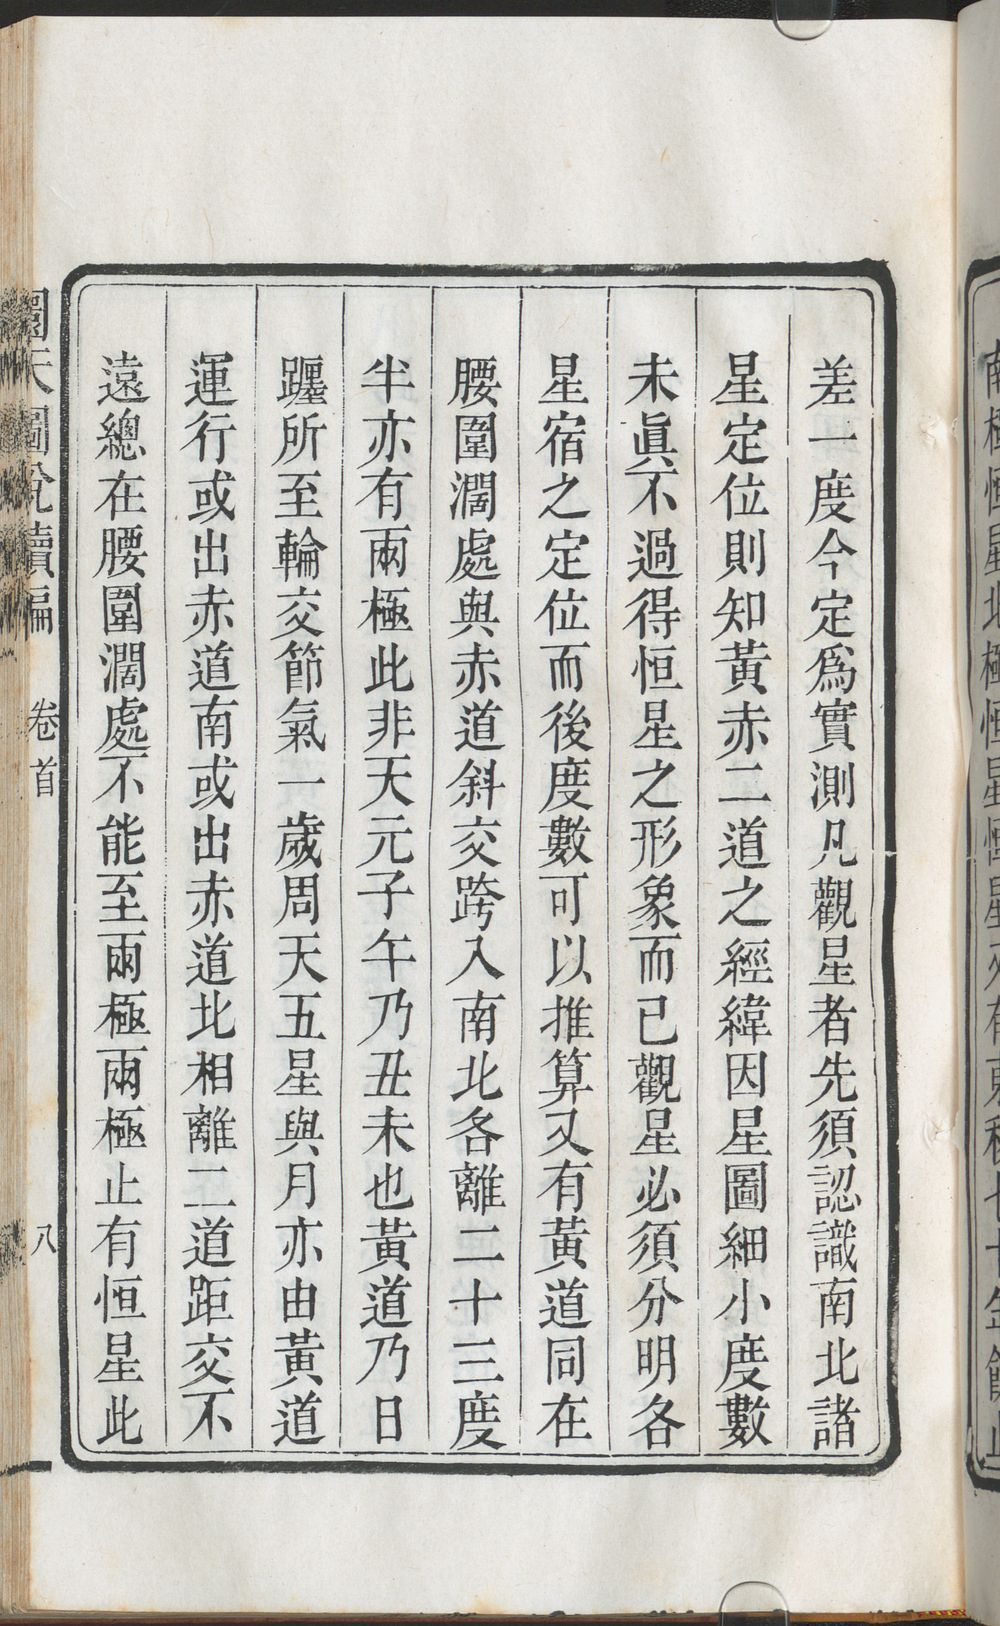 差一度今定爲實測凡觀星者先須認識南北諸
星定位則知黃赤二道之經緯因星圖細小度數
未眞不過得恒星之形象而已觀星必須分明各
星宿之定位而後度數可以推算又有黃道同在
腰圍濶處與赤道斜交跨入南北各離二十三度
半亦有兩極此非天元子午乃丑未也黃道乃日
躔所至輪交節氣一歲周天五星與月亦由黃道
運行或出赤道南或出赤道北相離二道距交不
遠總在腰圍濶處不能至兩極兩極止有恒星此
圜天圖說續編 卷首 八